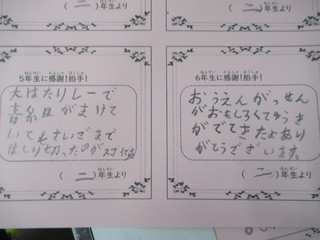 (二)年生より
(二)年生より
5年生に感謝!拍手!
大はたリレーで
青組がまけて
いてもさいごまで
はしり切ったのがスゴイ
(二)年生より
6年生に感謝!拍手!
おうえんがっせん
がおもしろくてゆうき
がでてきたよあり
がとうございます。
(二)年生より